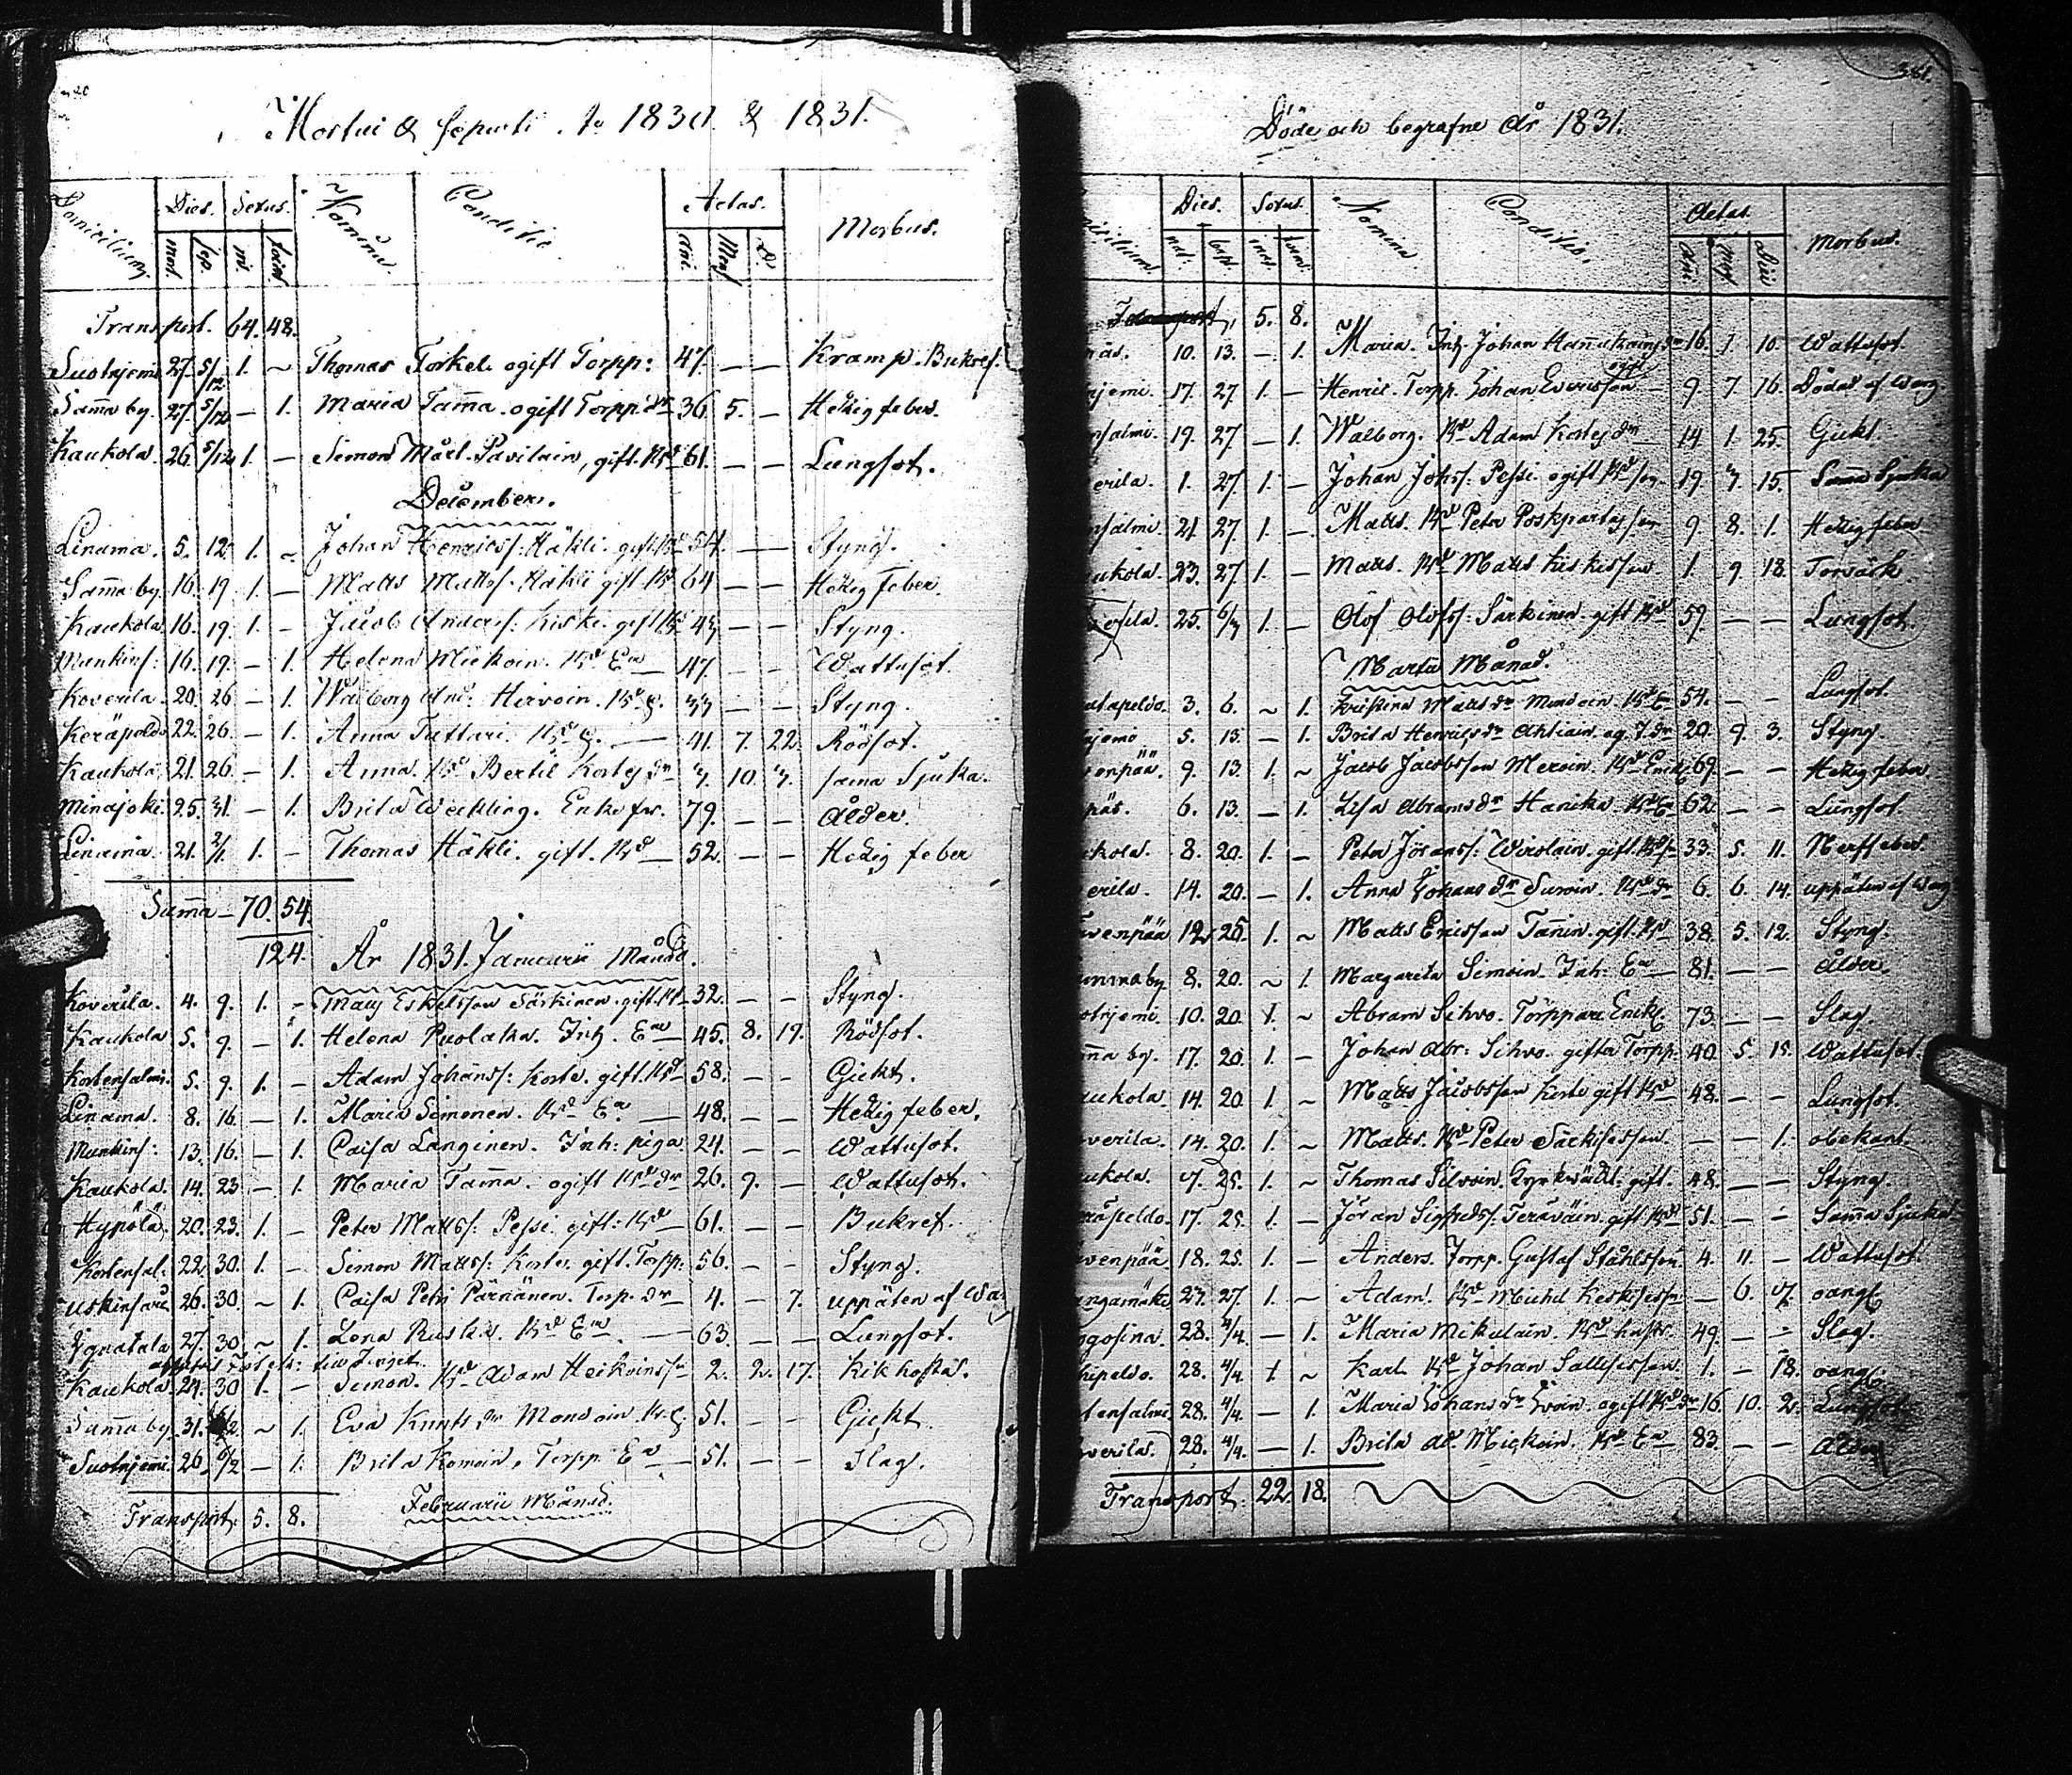 Mortui & sepulti Ao 1830 & 1831.
Domicilium. Dies. Sexus. Nomina. Conditio. Aetas. Morbus.
mort. sep. m. foem. Ann. Mens. D.
Transport. 64. 48.
Suotniemi 27. 5/12 1. ~ Thomas Torkel. ogift Torpp: 47. — — Kramp. Bukref.
Samma by. 27. 5/12 — 1. Maria Tamma. ogift Torpp. dr 36. 5. — Hetzig feber.
Kaukola. 26. 5/12 1. — Simon Mårt. Pavilain, gift. Bd 61. — — Lungsot.
December.
Linama. 5. 12. 1. ~ Johan Henrics. Häkli. gift Bd 54. — — Styng.
Samma by. 16. 19. 1. — Matts Matts. Häkli gift Bd 64 — — Hetzig feber.
Kaukola. 16. 19. 1. — Jacob Anders: Kiski. gift Bd 43 — — Styng.
Munkins: 16. 19. — 1. Helena Mickoin. Bd Ea — 47. — — Wattusot.
Koverila. 20. 26 — 1. Walborg And: Hirvoin. Bd h. 33 — — Styng.
Keräpeldo 22. 26. — 1. Anna Tattari. Bd h. — 41. 7. 22. Rödsot.
Kaukola. 21. 26. — 1. Anna. Bd Bertil Kortes dr 3. 10. 3. sama Sjuka.
Minajoki. 25. 31. — 1. Brita Weckling. Enkefru. 79. — — Ålder.
Linama. 21. 2/1. 1. — Thomas Häkli. gift. Bd — 52. — — Hetzig feber
Summa — 70. 54.
124. År 1831. Januarii Månad.
Koverila. 4. 9. 1. ~ Mats Eskelsson Särkinen. gift. Bd 32. — — Styng.
Kaukola 5. 9. — 1. Helena Puolakka. Inh. Ea — 45. 8. 19. Rödsot.
Kortensalmi. 5. 9. 1. — Adam Johanss: Korte. gift. Bd — 58. — — Gickt.
Linama. 8. 16. — 1. Maria Simonen. Bd Ea — 48. — — Hetzig feber.
Munkins: 13. 16. — 1. Caisa Langinen. Inh: piga. 24. — — Wattusot.
Kaukola. 14. 23. — 1. Maria Tamma. ogift Bd dr 26. 9. — Wattusot.
Hypölä. 20. 23. 1. — Peter Matts: Pessi. gift. Bd — 61. — — Bukref.
Kortensal: 22. 30. 1. — Simon Matts: Korte. gift. Torpp: 56. — — Styng.
26. 30. ~ 1. Caisa Petri Pärnänen. Torp. dr — 4. — 7. uppäten af
27. 30. ~ 1. Lena Ruskv. Bd Ea — 63. — — Lungsot.
Kaukola. 24. 30 1. — Simon. Bd Adam Heikoinss — 2. 2. 17. Kikhosta.
Samma by. 31. ~ 1. Eva Knuts dr Mondoin Bd h. 51. — — Gickt.
Suotniemi. 26. 6/2 — 1. Brita Komoin, Torpp. Ea — 51. — — Slag.
Transport. 5. 8. Februarii Månad.
381.
Döde och begrafne År 1831.
Dies. Sexus. Nomina. Conditio. Aetas. Morbus.
5. 8.
10. 13. — 1. Maria. Inh. Johan dr 16. 1 10. Wattusot.
17. 27 1. — Henric. Torpp. Johan Ericsson — 9. 7. 16. Dödad af Warg
19. 27 — 1. Walborg. Bd Adam Kortes dr 14 1 25. Gickt.
1. 27. 1. — Johan Johs: Pessi. ogift Bd son 19 3. 15. Samma Sjuka
21. 27 1. — Matts. Bd Peter Poskpartas son 9. 8. 1. Hetzig feber
23. 27 1. — Matts. Bd Matts Kiskisson 1. 9. 18. Torrvärk.
25. 6/3 1. — Olof Olofss: Särkinen. gift Bd 59. — — Lungsot.
Martii Månad.
3. 6. ~ 1. Matts dr Mondoin. Bd E 54. — — Lungsot.
5. 13. — 1. Brita Henrics dr Ahtiain. og. T. dr 20. 9. 3. Styng
9. 13. 1. ~ Jacob Jacobsson Meroin. Bd Enkl. 69. — — Hetzig feber
6. 13. — 1. Lisa Abrams dr Hanikka. Bd Ea 62. — — Lungsot
8. 20. 1. — Peter Johanss: Wirolain. gift. Bd 33. 5. 11. Nerffeber.
14. 20. — 1. Anna Johans dr Suvoin. Bd dr 6. 6. 14. uppäten af Warg
12. 20. 1. ~ Matts Ericsson Tannin. gift. Bd 38. 5. 12. Styng.
8. 20. ~ 1. Margareta Simoin. Inh: Ea — 81. — — Ålder.
10. 20. 1. ~ Abram Sihvo. Torppare Enkl. 73. — — Slag.
17. 20. 1. — Johan Abr: Sihvo. gifta Torpp. 40. 5. 15. Wattusot
14. 20 1. — Matts Jacobsson Korte gift Bd 48. — — Lungsot.
14. 20. 1. ~ Matts. Bd Peter Särkisson. — — 1. obekant
7. 25. 1. — Thomas Silvoin. Kyrkvakt. gift. 48. — — Styng.
17. 25. 1. — Jöran Sigfrids: Teräväin. gift Bd 51. — — Samma Sjuka
18. 25. 1. — Anders. Torpp. Gustaf Ståhlsson 4. 11. — Wattusot.
23. 27. 1. ~ Adam. Bd Michel Keskisson — 6. 7.
28. 4/4. — 1. Maria Mikulain. Bd 49. — — Slag.
28. 4/4. 1 ~ Karl. Bd Johan 1. — 18.
28. 4/4. — 1. Maria Johans dr ogift Bd dr 16. 10. 2. Lungsot
28. 4/4. — 1. Brita Ad. Mickoin. Bd Ea 83. — — Ålder
Transport. 22. 18.